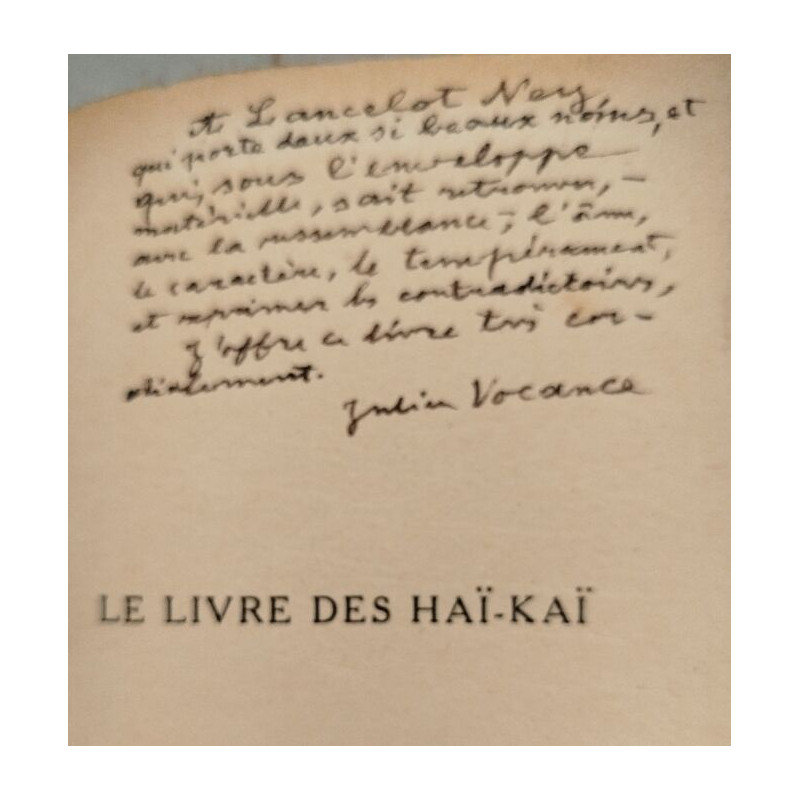 A Lancelot Ney,
qui porte deux si beaux noms, et
qui, sous l'enveloppe
matérielle, sait retrouver, –
avec la ressemblance –, l'âme,
le caractère, le tempérament,
et exprimer les contradictoires,
j'offre ce livre très cor-
dialement.
Julien Vocance
LE LIVRE DES HAÏ-KAÏ